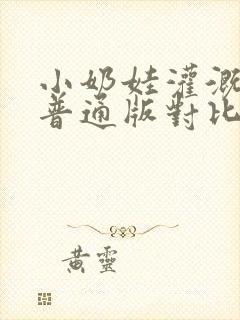 小奶娃灌溉
普通版對比
黃靈